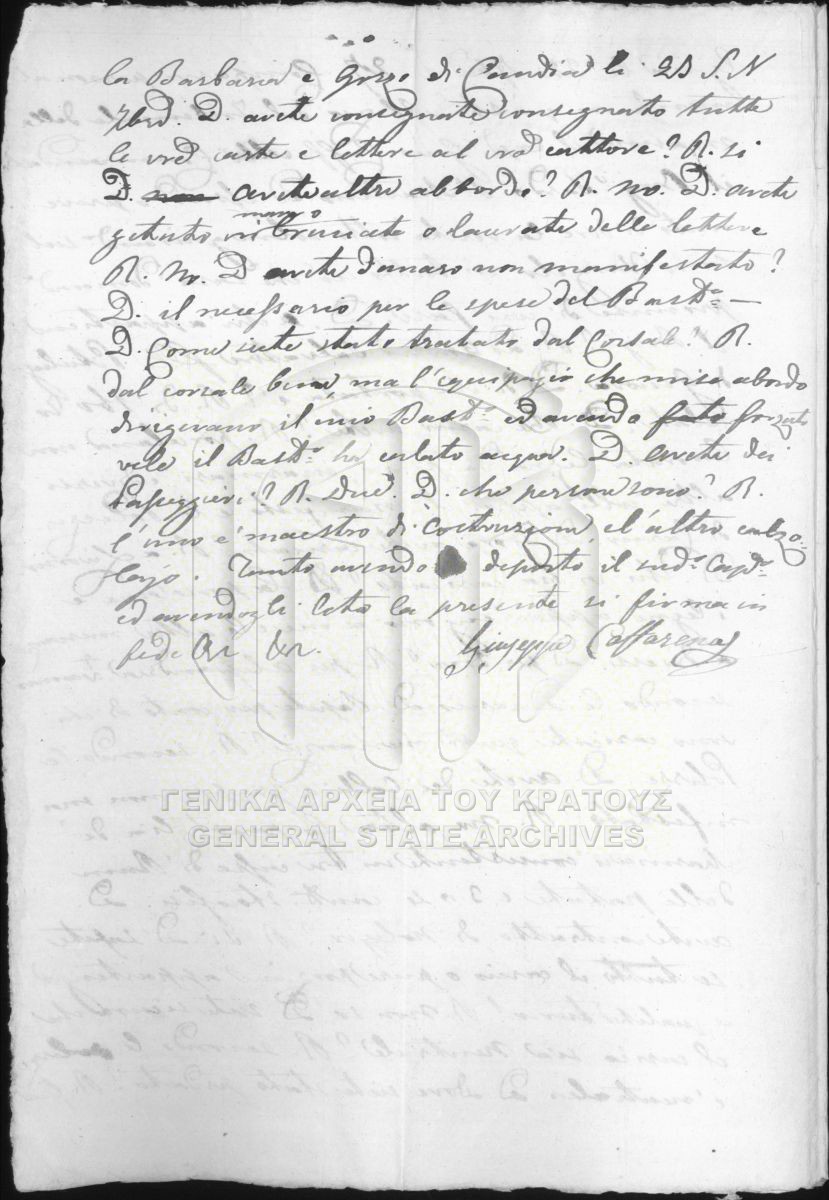 la Barbaria e Gozzo di Candia li 21 S.N
7brd. D. avete consegnate consegnato tutte
le vrd carte e lettere al vrd cattore? R. si
D. non avete altre abbordo? R. No. D. avete
getato in mano bruciate o lacerate delle lettere
R. No. D avete danaro non manifestato?
D. il necessario per le spese del Bastto —
D. Come siete stato tratato dal Corsale? R.
dal corsale bene ma l'equipagio che mise abordo
dirigevano il mio Bastto ed avendo fato forzato
vele il Bastto ha culato acqua. D. avete dei
Passeggieri? R. due. D. che persone sono? R.
l'uno e' maestro di Costruzione, el'altro calzo-
lajo. Tanto avendo deposto il sudo Capno
ed avendogli leto la presente si firma in
fede &r &r. Giuseppe Caffarena
ΓΕΝΙΚΑ ΑΡΧΕΙΑ ΤΟΥ ΚΡΑΤΟΥΣ
GENERAL STATE ARCHIVES